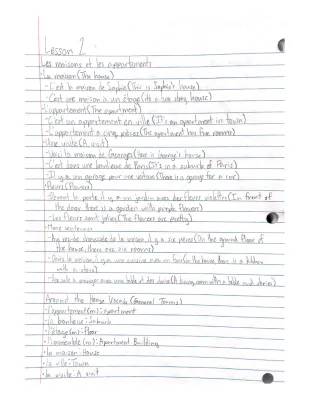 Lesson 2
Les maisons et les appartements
•La maison (The house)
-C'est la maison de Sophie (This is Sophie's house)
-C'est une maison à un étage (It's a one story house)
•L'appartement (The apartment)
-C'est un appartement en ville (It's an apartment in town)
-L'appartement a cinq pièces (The apartment has five rooms)
•Une visite (A visit)
-Voici la maison de Georges (Here is George's house)
-C'est dans une banlieue de Paris (It's in a suburb of Paris)
-Il y a un garage pour une voiture (There is a garage for a car)
•Fleurs (Flowers)
-Devant la porte il y a un jardin avec des fleurs violettes (In front of
the door there is a garden with purple flowers)
-Les fleurs sont jolies (The flowers are pretty)
•More sentences
-Au rez-de-chaussée de la maison, il y a six pièces (On the ground floor of
the house, there are six rooms)
-Dans la maison, il y a une cuisine avec un (In the house, there is a kitchen
with a stove)
-Une salle à manger avec une table et des chaises (A dining room with a table and chairs)
Around the House Vocab (General Terms)
•L'appartement (m): Apartment
•La banlieue: Suburb
•L'étage (m): Floor
•L'immeuble (m): Apartment Building
•La maison: House
•La ville: Town
•La visite: A visit